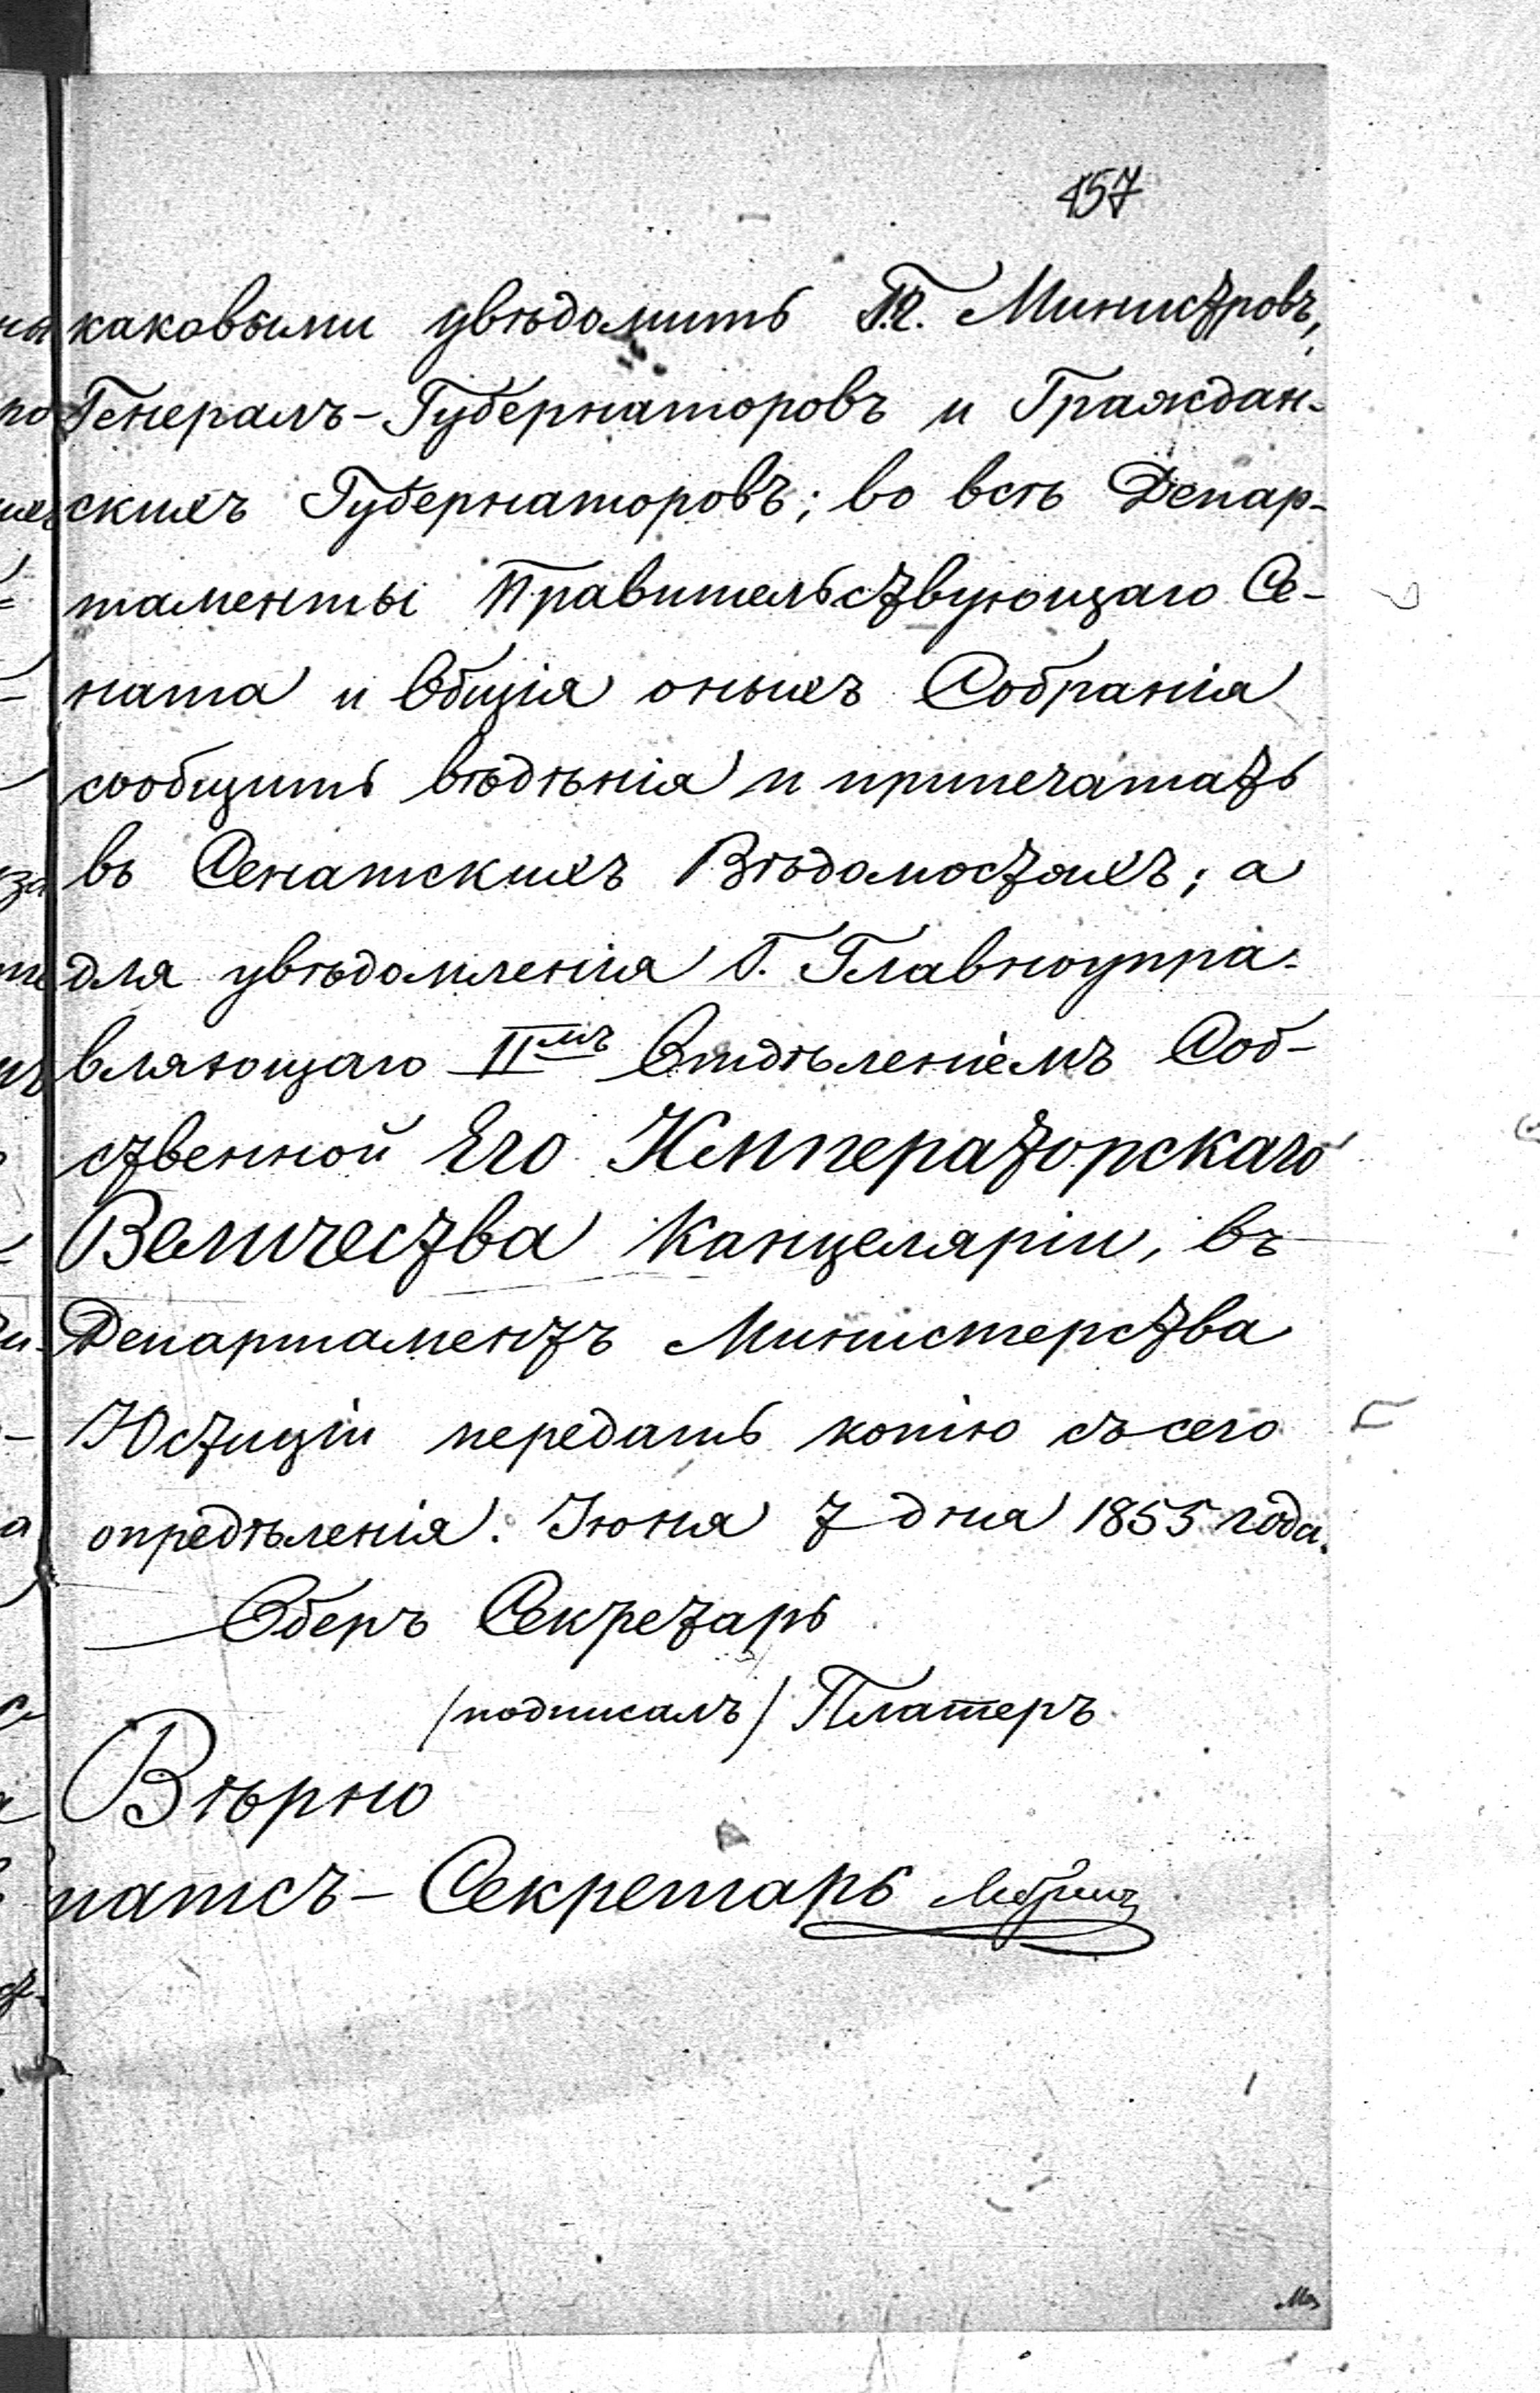 157
каковыми увѣдомить Г.г. Министровъ,
Генералъ-Губернаторовъ и Граждан-
скихъ Губернаторовъ; во всѣ Депар-
таменты Правительствующаго Се-
ната и Общія оныхъ Собранія
сообщить вѣдѣнія и припечатать
въ Сенатскихъ Вѣдомостяхъ; а
для увѣдомленія Г. Главноупра-
вляющаго II мъ Отдѣленіемъ Соб-
ственной Его Императорскаго
Величества Канцеляріи, въ
Департаментъ Министерства
Юстиціи передать копію съ сего
опредѣленія. Іюня 7 дня 1855 года.
Оберъ Секретарь
/подписалъ/ Платеръ
Вѣрно
натсъ-Секретарь